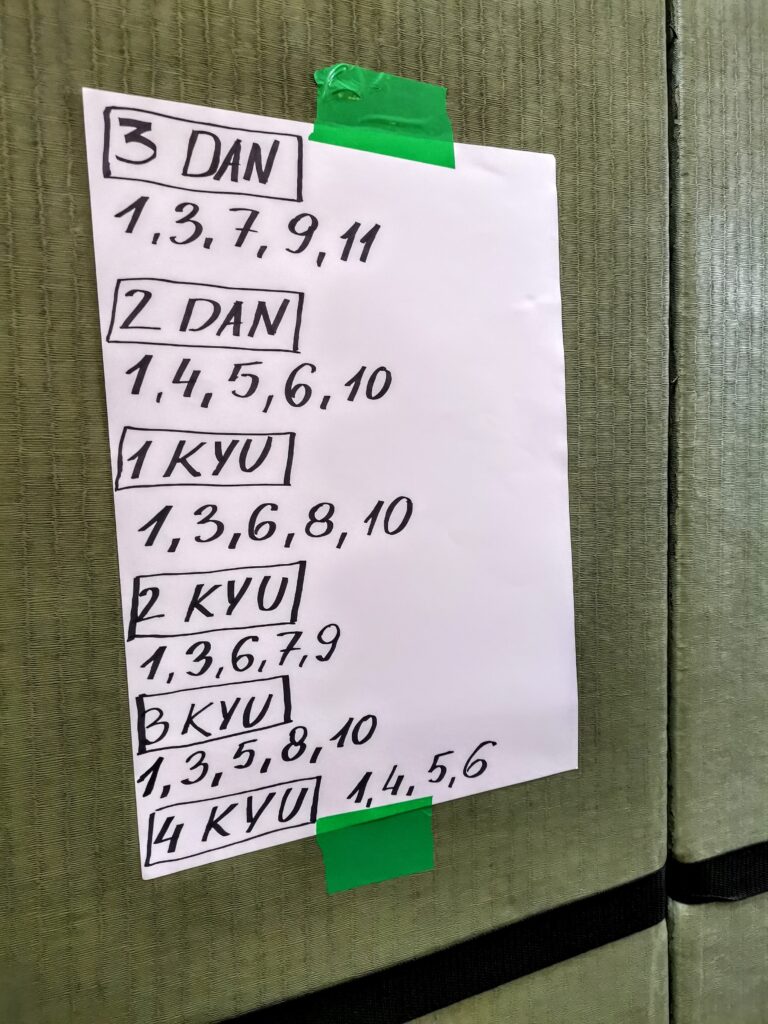 3 DAN
1, 3, 7, 9, 11
2 DAN
1, 4, 5, 6, 10
1 KYU
1, 3, 6, 8, 10
2 KYU
1, 3, 6, 7, 9
3 KYU
1, 3, 5, 8, 10
4 KYU 1, 4, 5, 6